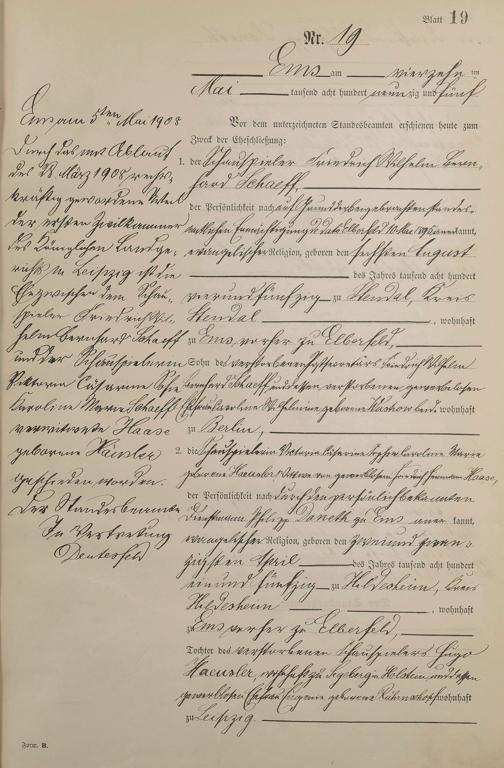 Blatt 19
Nr. 19
Ems am vierzehn ten
Mai tausend acht hundert neunzig und fünf
Vor dem unterzeichneten Standesbeamten erschienen heute zum
Zweck der Eheschließung:
1. der Schauspieler Friedrich Wilhelm Bern-
hard Schaeff,
der Persönlichkeit nach auf Grund der beigebrachten standes-
amtlichen Ermächtigung d. d. Elberfeld 10. Mai 1895 anerkannt,
evangelischer Religion, geboren den sechsten August
des Jahres tausend acht hundert
vierundfünfzig zu Stendal, Kreis
Stendal, wohnhaft
zu Ems, vorher zu Elberfeld,
Sohn des verstorbenen Friedrich Wilhelm
Bernhard Schaeff und dessen verstorbenen, gewerbelosen
Ehefrau Caroline Wilhelmine geborene beide wohnhaft
zu Berlin,
2. die Schauspielerin Victoria Cäsarine Sophie Caroline Marie
geborene Haeusler, Witwe von Heinrich Hermann Haase,
der Persönlichkeit nach durch den persönlich bekannten
Dienstmann Philipp Daneth zu Ems aner kannt,
evangelischer Religion, geboren den zweiundzwan-
zigsten April des Jahres tausend acht hundert
einundfünfzig zu Hildesheim, Kreis
Hildesheim, wohnhaft
zu Ems vorher zu Elberfeld,
Tochter des verstorbenen Schauspielers Hugo
Haeusler, wohnhaft zu Segeberg in Holstein und dessen
gewerblosen Ehefrau Eugenie geborene wohnhaft
zu Leipzig.
Ems am 5ten Mai 1908
Durch das mit Ablauf
des 28 März 1908 rechts-
kräftig gewordene Urteil
der ersten Zivilkammer
des Königlichen Landge-
richts in Leipzig ist die
Ehe zwischen dem Schau-
spieler Friedrich Wil-
helm Bernhard Schaeff
und der Schauspielerin
Viktoria Cäsarine Sofie
Karoline Marie Schaeff
verwitwete Haase
geborene Häusler
geschieden worden.
Der Standesbeamte
In Vertretung
Deutesfeld
Form. B.